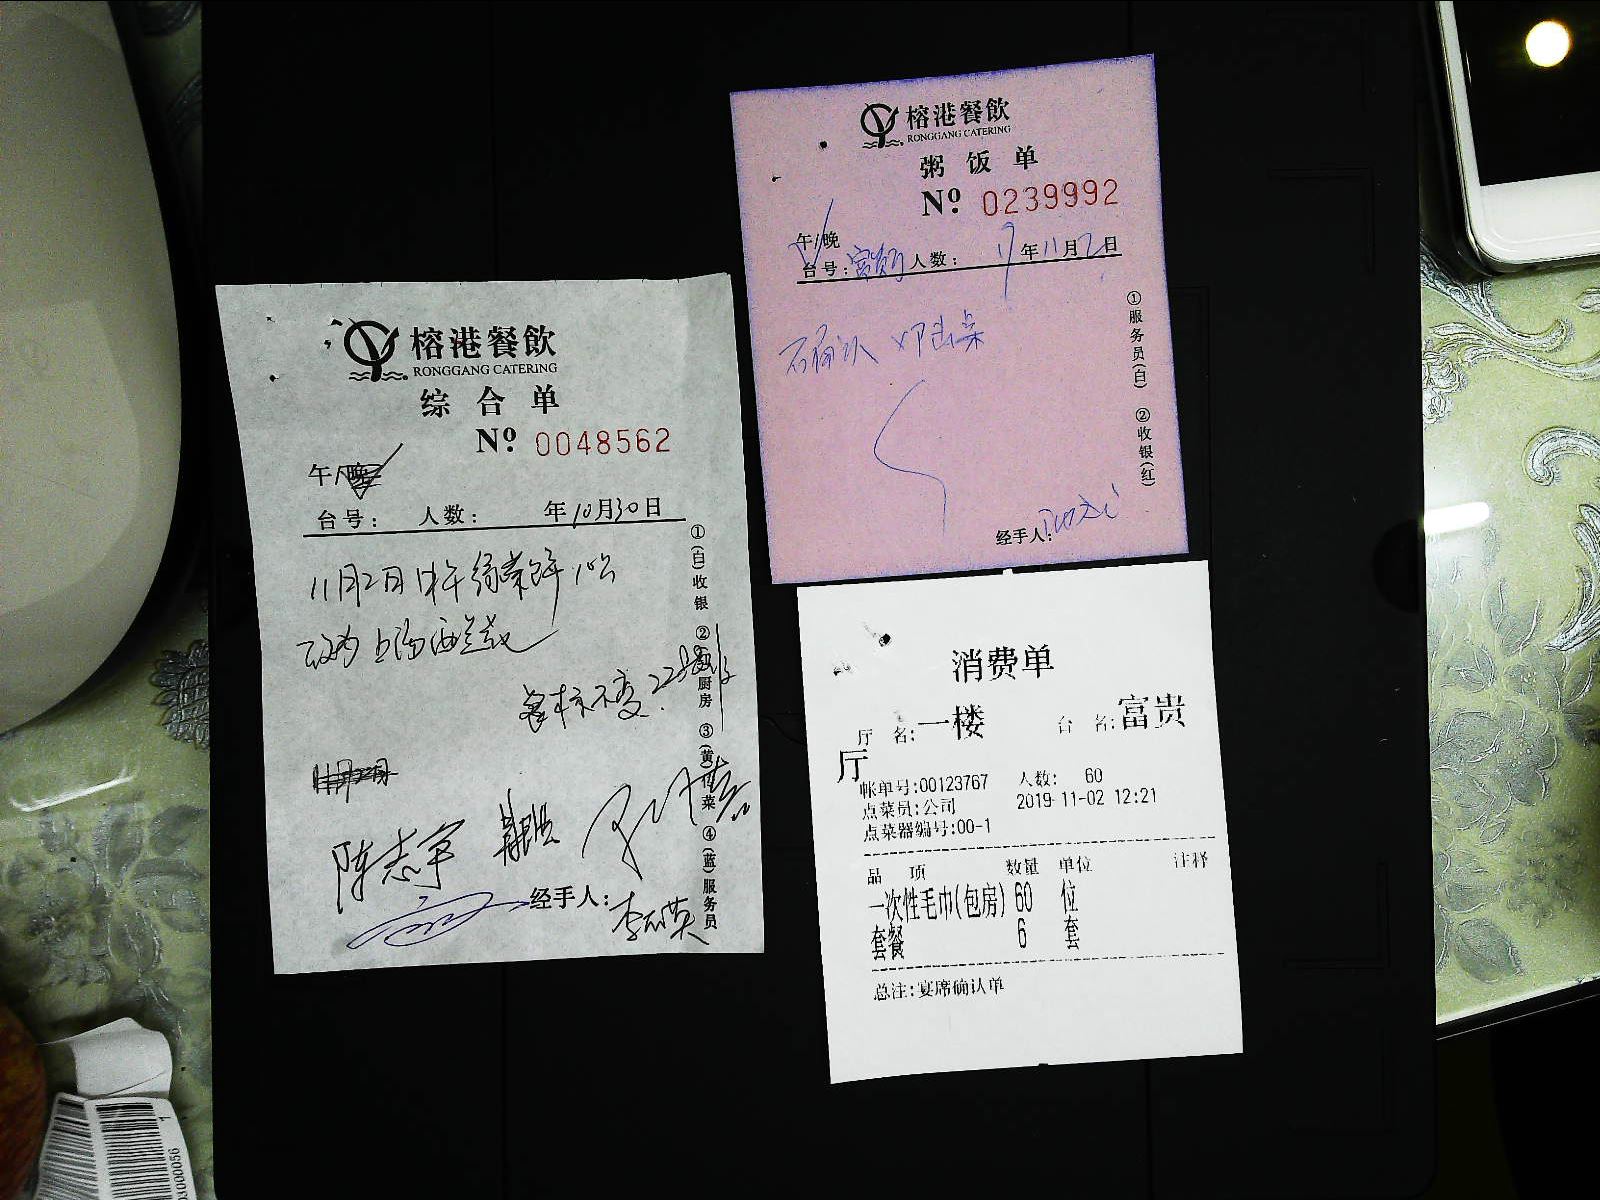 榕港餐飲
RONGGANG CATERING
综合单
Nº 0048562
午/晚
台号: 人数: 年10月30日
11月2日中午
改为上汤西兰花
套标不变
11月2日
陈志宇
经手人:
①(白)收银 ②厨房 ③(黄)传菜 ④(蓝)服务员
榕港餐飲
RONGGANG CATERING
粥饭单
Nº 0239992
午/晚
台号:富贵厅 人数: 19年11月2日
确认
经手人:
①服务员(白) ②收银(红)
消费单
厅名:一楼 台名:富贵
厅
帐单号:00123767 人数: 60
点菜员:公司 2019-11-02 12:21
点菜器编号:00-1
品项 数量 单位 注释
一次性毛巾(包房) 60 位
套餐 6 套
总注:宴席确认单
1
00000056